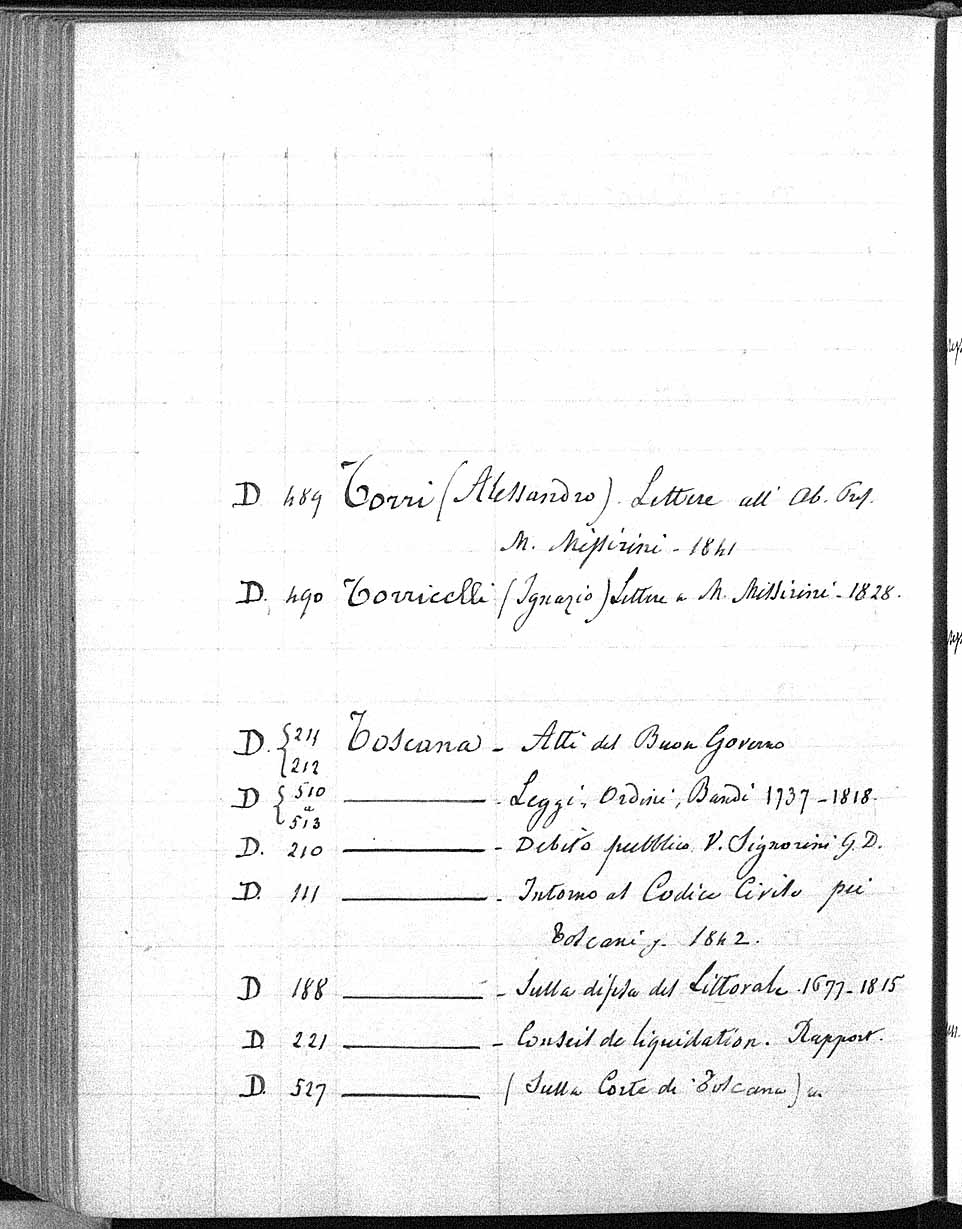 D 489 Torri (Alessandro). Lettere all' Ab. Prof.
M. Missirini - 1841
D. 490 Torricelli (Ignazio) Lettere a M. Missirini - 1828.
D. {211 Toscana - Atti del Buon Governo
{212
D {510 - Leggi, Ordini, Bandi 1737 - 1818.
a
513
D. 210 - Debito pubblico V. Signorini G. D.
D. 111 - Intorno al Codice Civile pei
Toscani 1842.
D 188 - Sulla difesa del Littorale 1677 - 1815
D. 221 - Conseil de liquidation. Rapport.
D. 527 (Sulla Corte di Toscana)